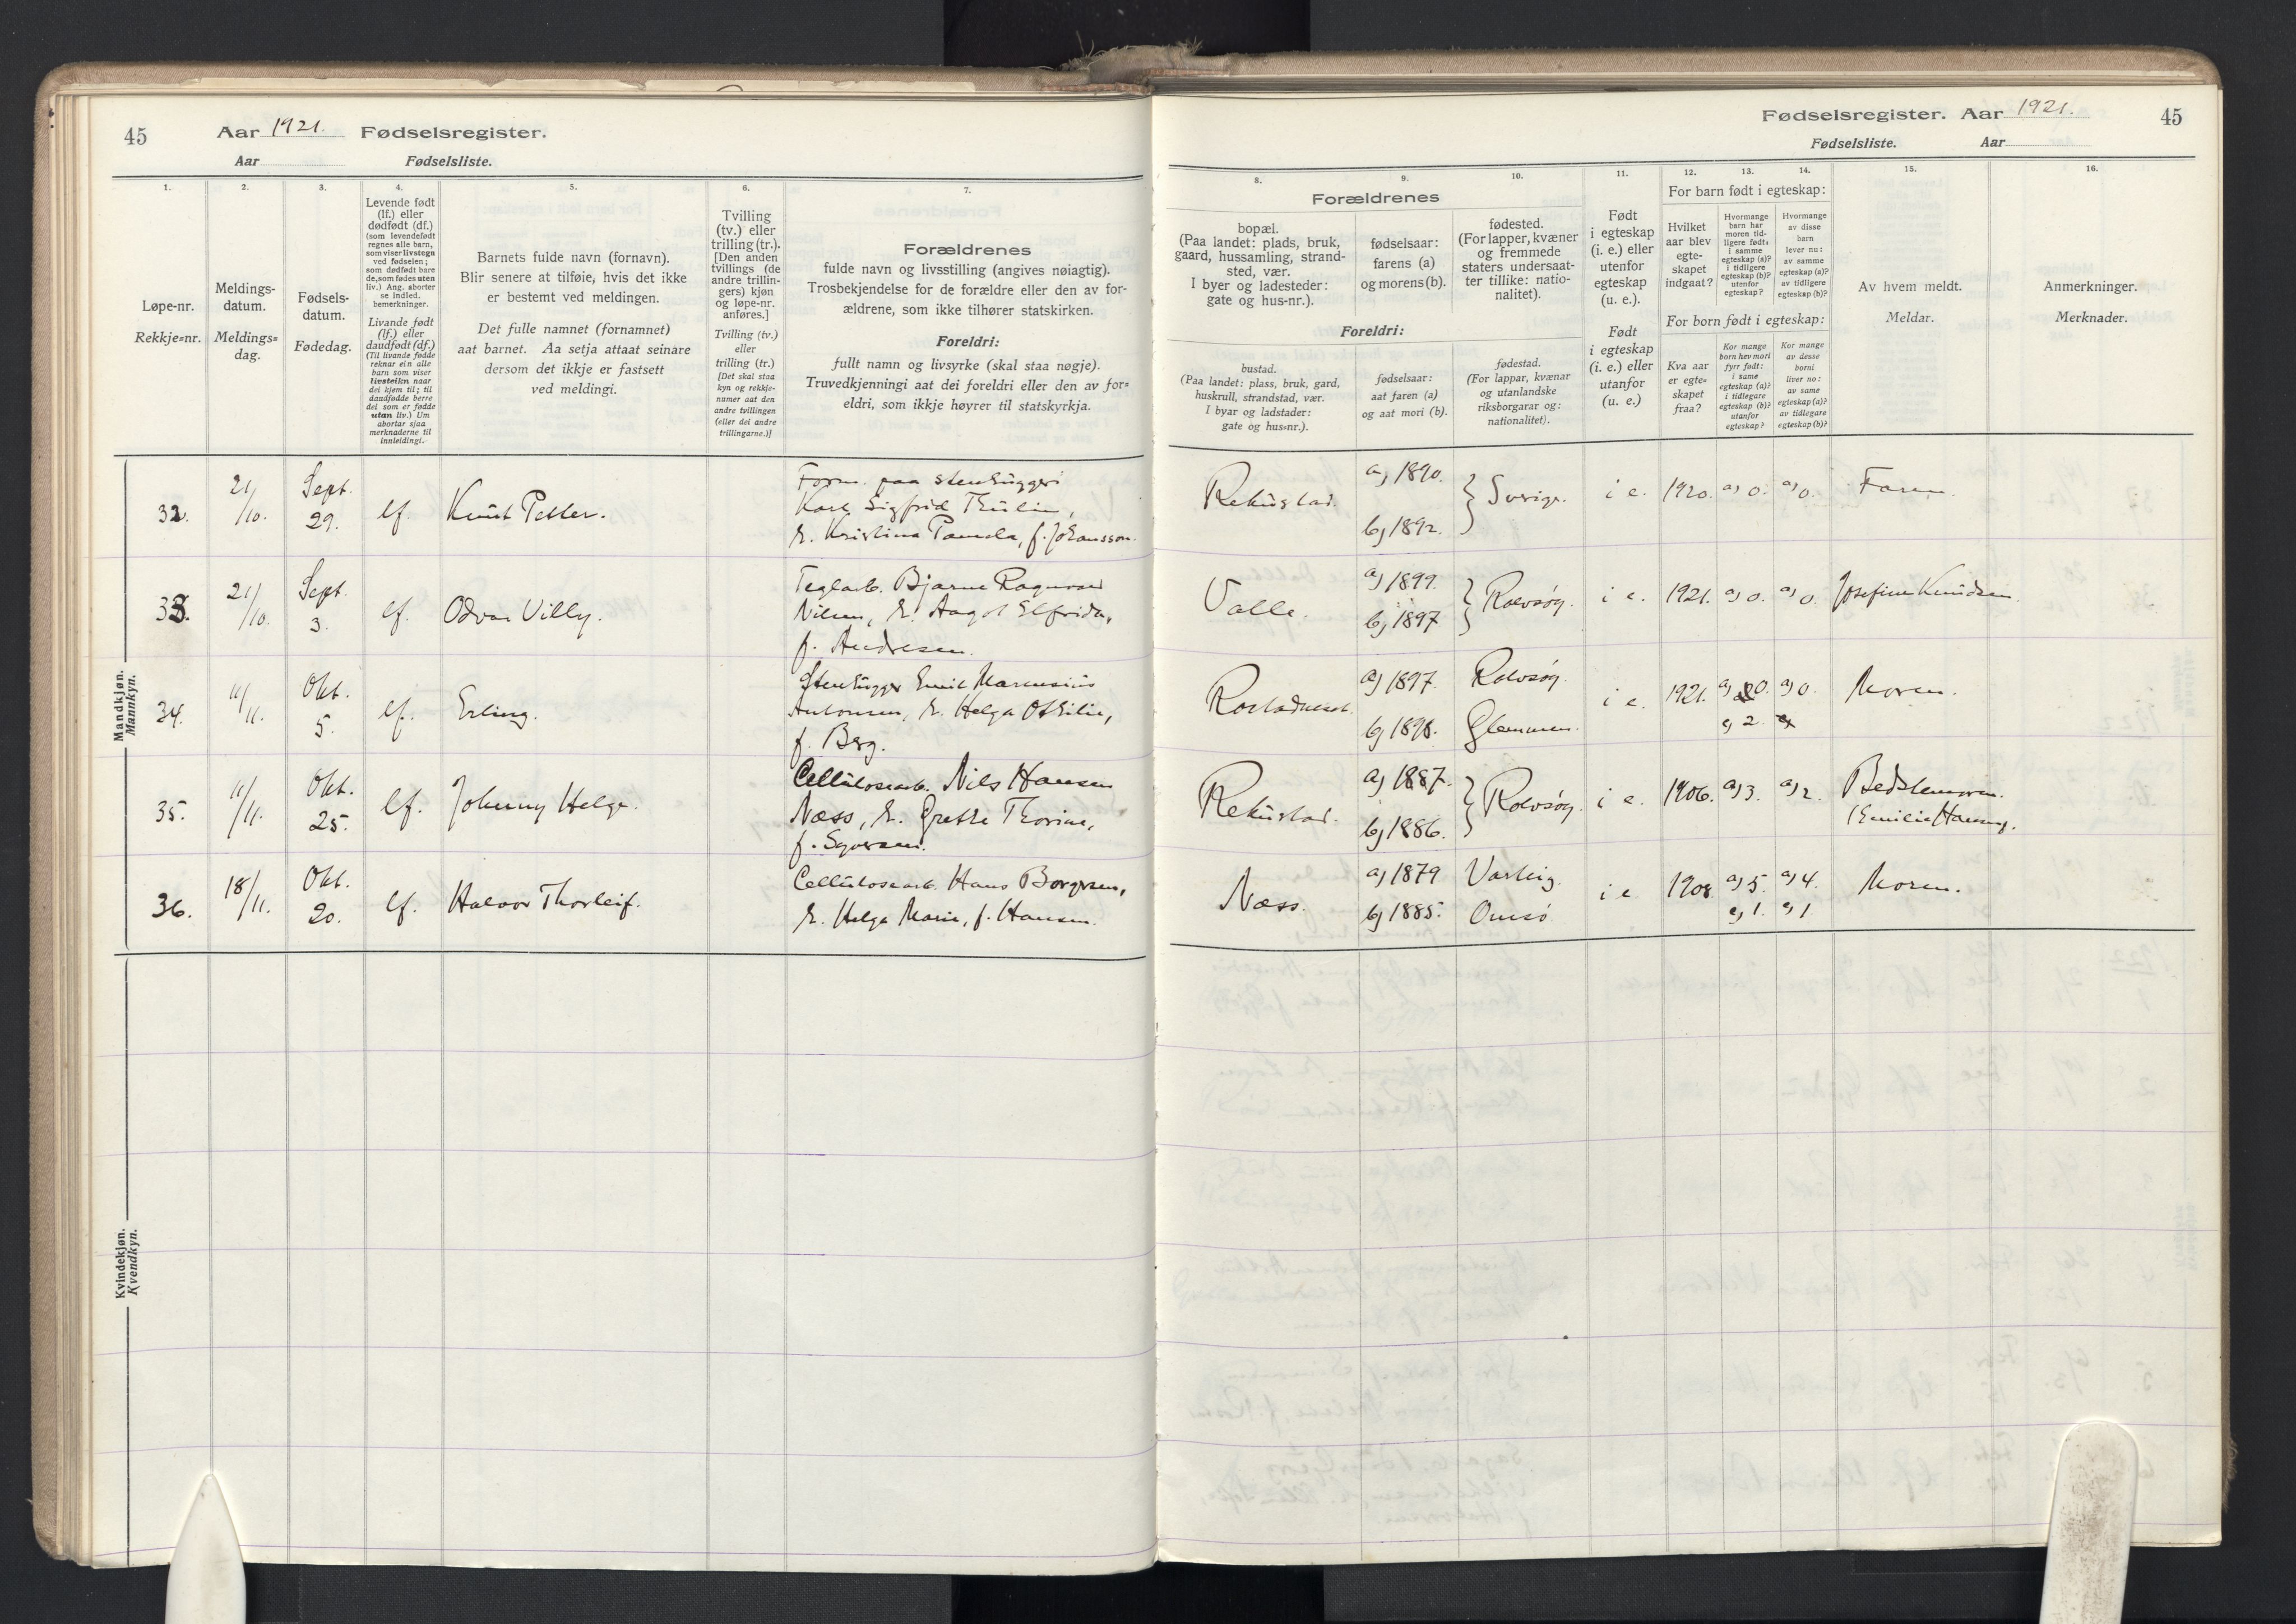 45
Aar 1921. Fødselsregister.
Aar Fødselsliste.
1.
2.
3.
4.
5.
6.
7.
Løpe-nr.
Rekkje=nr.
Meldings-
datum.
Meldings=
dag.
Fødsels-
datum.
Fødedag.
Levende født
(lf.) eller
dødfødt (df.)
(som levendefødt
regnes alle barn,
som viser livstegn
ved fødselen;
som dødfødt bare
de, som fødes uten
liv.) Ang. aborter
se indled.
bemerkninger.
Livande født
(lf.) eller
daudfødt (df.)
(Til livande fødde
reknar ein alle
barn som viser
livsteikn naar
dei kjem til; til
daudfødde berre
dei som er fødde
utan liv.) Um
abortar sjaa
merknaderne til
innleidingi.
Barnets fulde navn (fornavn).
Blir senere at tilføie, hvis det ikke
er bestemt ved meldingen.
Det fulle namnet (fornamnet)
aat barnet. Aa setja attaat seinare
dersom det ikkje er fastsett
ved meldingi.
Tvilling
(tv.) eller
trilling (tr.).
[Den anden
tvillings (de
andre trillin-
gers) kjøn
og løpe-nr.
anføres.]
Tvilling (tv.)
eller
trilling (tr.)
[Det skal staa
kyn og rekkje-
numer aat den
andre tvillingen
(eller dei andre
trillingarne.)]
Forældrenes
fulde navn og livsstilling (angives nøiagtig).
Trosbekjendelse for de forældre eller den av for-
ældrene, som ikke tilhører statskirken.
Foreldri:
fullt namn og livsyrke (skal staa nøgje).
Truvedkjenningi aat dei foreldri eller den av for=
eldri, som ikkje høyrer til statskyrkja.
Mandkjøn.
Mannkyn.
32. 21/10. Sept. 29. lf. Knut Petter.
Form. paa stenhuggeri
Karl Sigfrid Thulin,
h. Kristina Pamela, f. Johansson.
33. 21/10. Sept. 3. lf. Odvar Villy.
Teglarb. Bjarne Ragnvald
Nilsen, h. Aagot Elfrida,
f. Andresen.
34. 11/11. Okt. 5. lf. Erling.
Stenhugger Emil Marensius
Antonsen, h. Helga Othilie,
f. Berg.
35. 11/11. Okt. 25. lf. Johnny Helge.
Cellulosearb. Nils Hansen
Næss, h. Grethe Thorine,
f. Syversen.
36. 18/11. Okt. 20. lf. Halvor Thorleif.
Cellulosearb. Hans Borgersen,
h. Helga Marie, f. Hansen.
Kvindekjøn.
Kvendkyn.
Fødselsregister. Aar 1921.
45
Fødselsliste. Aar
8.
9.
10.
11.
12.
13.
14.
15.
16.
Forældrenes
bopæl.
(Paa landet: plads, bruk,
gaard, hussamling, strand-
sted, vær.
I byer og ladesteder:
gate og hus-nr.).
fødselsaar:
farens (a)
og morens (b).
fødested.
(For lapper, kvæner
og fremmede
staters undersaat-
ter tillike: natio-
nalitet).
Foreldri:
bustad.
(Paa landet: plass, bruk, gard,
huskrull, strandstad, vær.
I byar og ladstader:
gate og hus=nr.).
fødselsaar:
aat faren (a)
og aat mori (b).
fødestad.
(For lappar, kvænar
og utanlandske
riksborgarar og:
nationalitet).
Født
i egteskap
(i. e.) eller
utenfor
egteskap
(u. e.).
Født
i egteskap
(i. e.) eller
utanfor
(u. e.)
For barn født i egteskap:
Hvilket
aar blev
egte-
skapet
indgaat?
Hvormange
barn har
moren tid-
ligere født:
i samme
egteskap (a)?
i tidligere
egteskap (b)?
utenfor
egteskap?
Hvormange
av disse
barn
lever nu:
av samme
egteskap (a)?
av tidligere
egteskap (b)?
For born født i egteskap:
Kva aar
er egte=
skapet
fraa?
Kor mange
born hev mori
fyrr født:
i same
egteskap (a)?
i tidlegare
egteskap (b)?
utanfor
egteskap?
Kor mange
av desse
borni
liver no:
av same
egteskap (a)?
av tidlegare
egteskap (b)?
Av hvem meldt.
Meldar.
Anmerkninger.
Merknader.
Rekustad. a) 1890. b) 1892. } Sverige. i e. 1920. a) 0. a) 0. Faren.
Valle. a) 1899. b) 1897 } Rolvsøy. i e. 1921. a) 0. a) 0. Josefine Knudsen.
a) 1897. Rolvsøy. i e. 1921. a) 0. a) 0. Moren.
b) 1898. Glemmen. c) 2.
Rekustad. a) 1887. b) 1886. } Rolvsøy. i e. 1906. a) 3. a) 2. Bedstemoren.
(Emilie Hansen).
Næss. a) 1879 Varteig. i e. 1908 a) 5. a) 4. Moren.
b) 1885. Onsø. c) 1. c) 1.